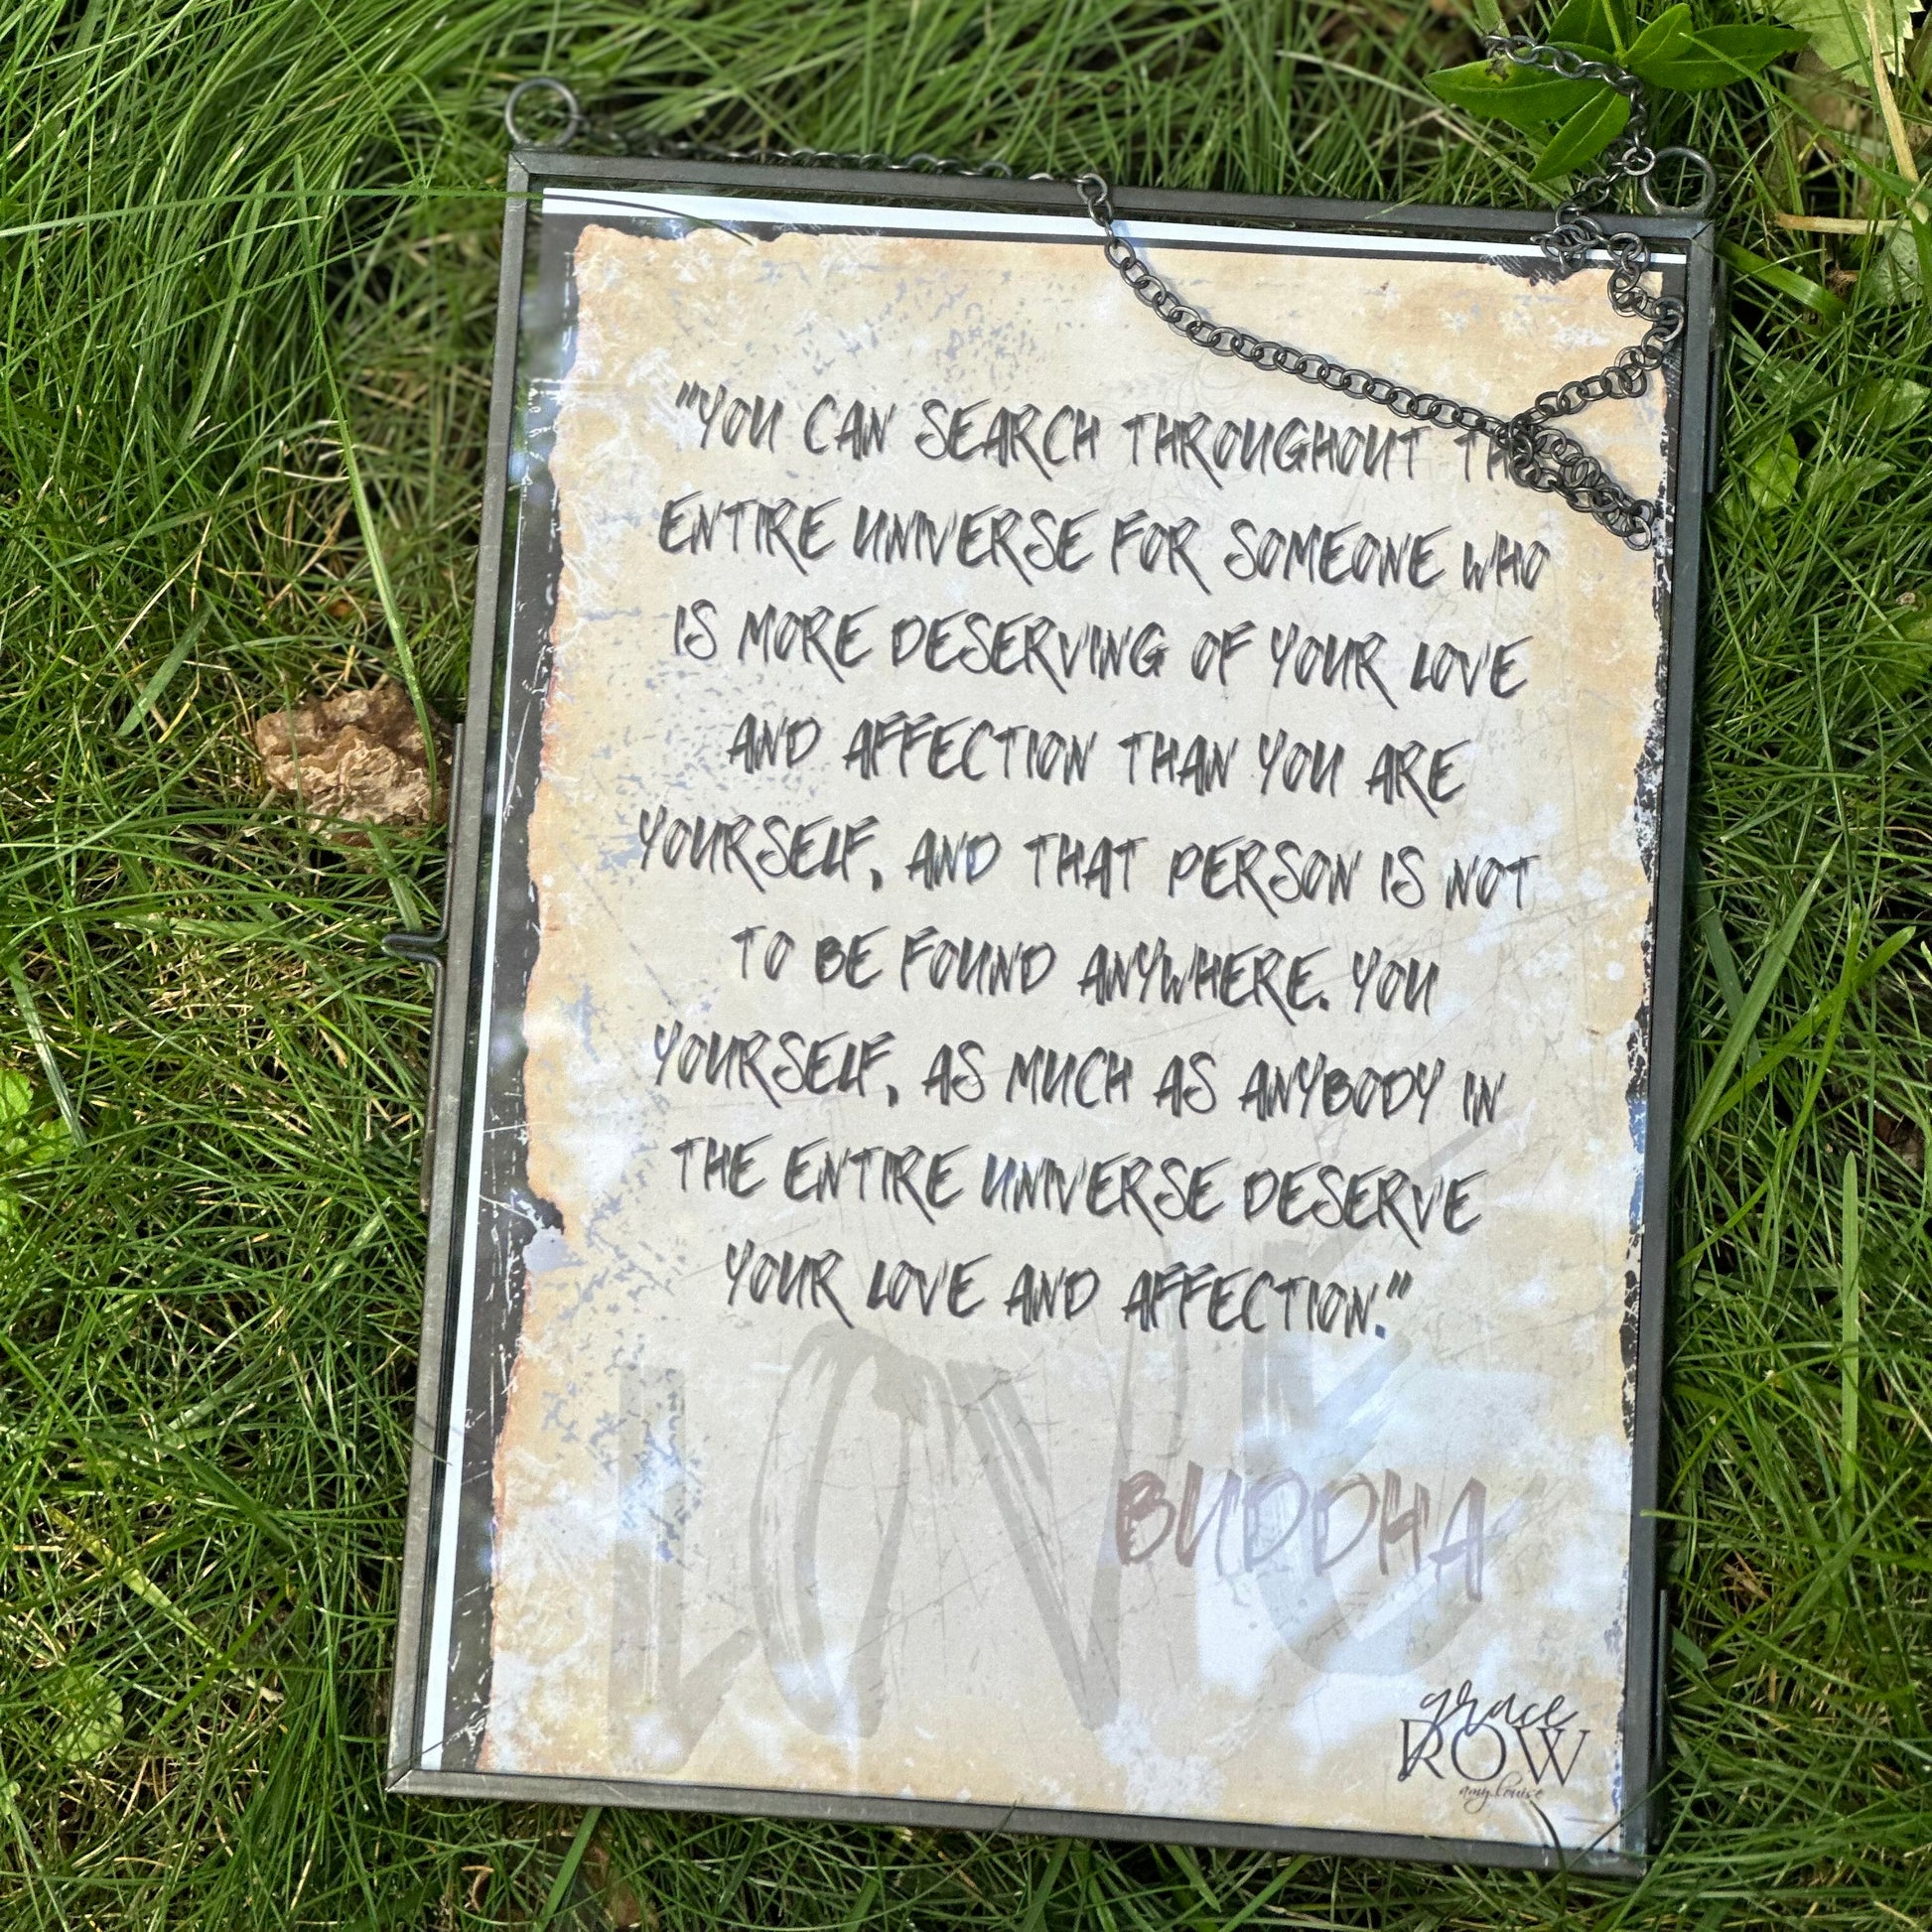 "YOU CAN SEARCH THROUGHOUT THE
ENTIRE UNIVERSE FOR SOMEONE WHO
IS MORE DESERVING OF YOUR LOVE
AND AFFECTION THAN YOU ARE
YOURSELF, AND THAT PERSON IS NOT
TO BE FOUND ANYWHERE. YOU
YOURSELF, AS MUCH AS ANYBODY IN
THE ENTIRE UNIVERSE DESERVE
YOUR LOVE AND AFFECTION."
LOVE
BUDDHA
grace
ROW
amy.louise